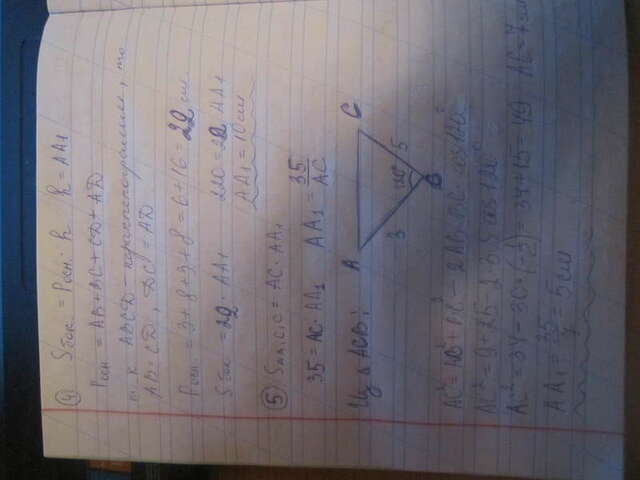 ④ Sбок. = Pосн. · h    h = AA₁
Pосн = AB + BC + CD + AD
т. к. ABCD - параллелограмм, то
AB = CD, BC = AD
Pосн. = 3 + 8 + 3 + 8 = 6 + 16 = 22 см.
Sбок = 22 · AA₁    220 = 22 · AA₁
AA₁ = 10 см
⑤ = AC · AA₁
35 = AC · AA₁    AA₁ = 35/AC
Из Δ ACB:
A C
3 120° 5
B
AC² = AB² + BC² - 2AB·BC·cos120°
AC² = 9 + 25 - 2·3·5 cos120°
AC² = 34 - 30·(-1/2) = 34 + 15 = 49    AC = 7 см
AA₁ = 35/7 = 5 см